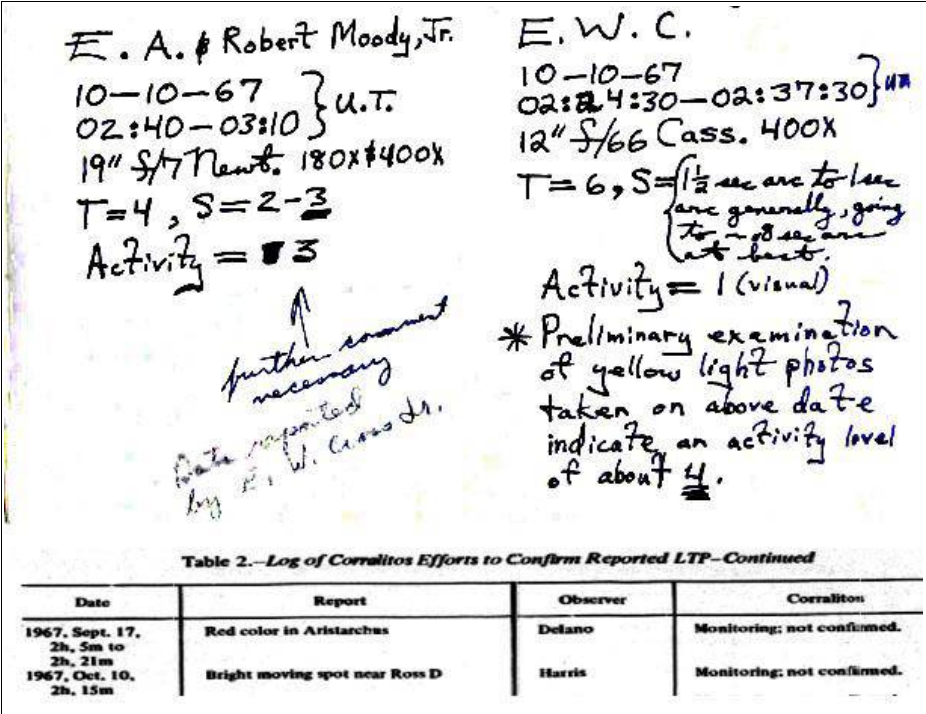 E. A. & Robert Moody, Jr.
10-10-67
02:40-03:10 } U.T.
19" f/7 Newt. 180X & 400X
T=4, S=2-3
Activity = 3
further comment
necessary
Data reported
by E. W. Cross Jr.
E. W. C.
10-10-67
02:24:30-02:37:30
12" f/66 Cass. 400X
T=6, S= 1½ sec arc to 1 sec
arc generally, going
to ~.8 sec arc
at best.
Activity = 1 (visual)
* Preliminary examination
of yellow light photos
taken on above date
indicate an activity level
of about 4.
Table 2.—Log of Corralitos Efforts to Confirm Reported LTP—Continued
Date Report Observer Corralitos
1967, Sept. 17, Red color in Aristarchus Delano Monitoring; not confirmed.
2h, 5m to
2h, 21m
1967, Oct. 10, Bright moving spot near Ross D Harris Monitoring; not confirmed.
2h, 15m